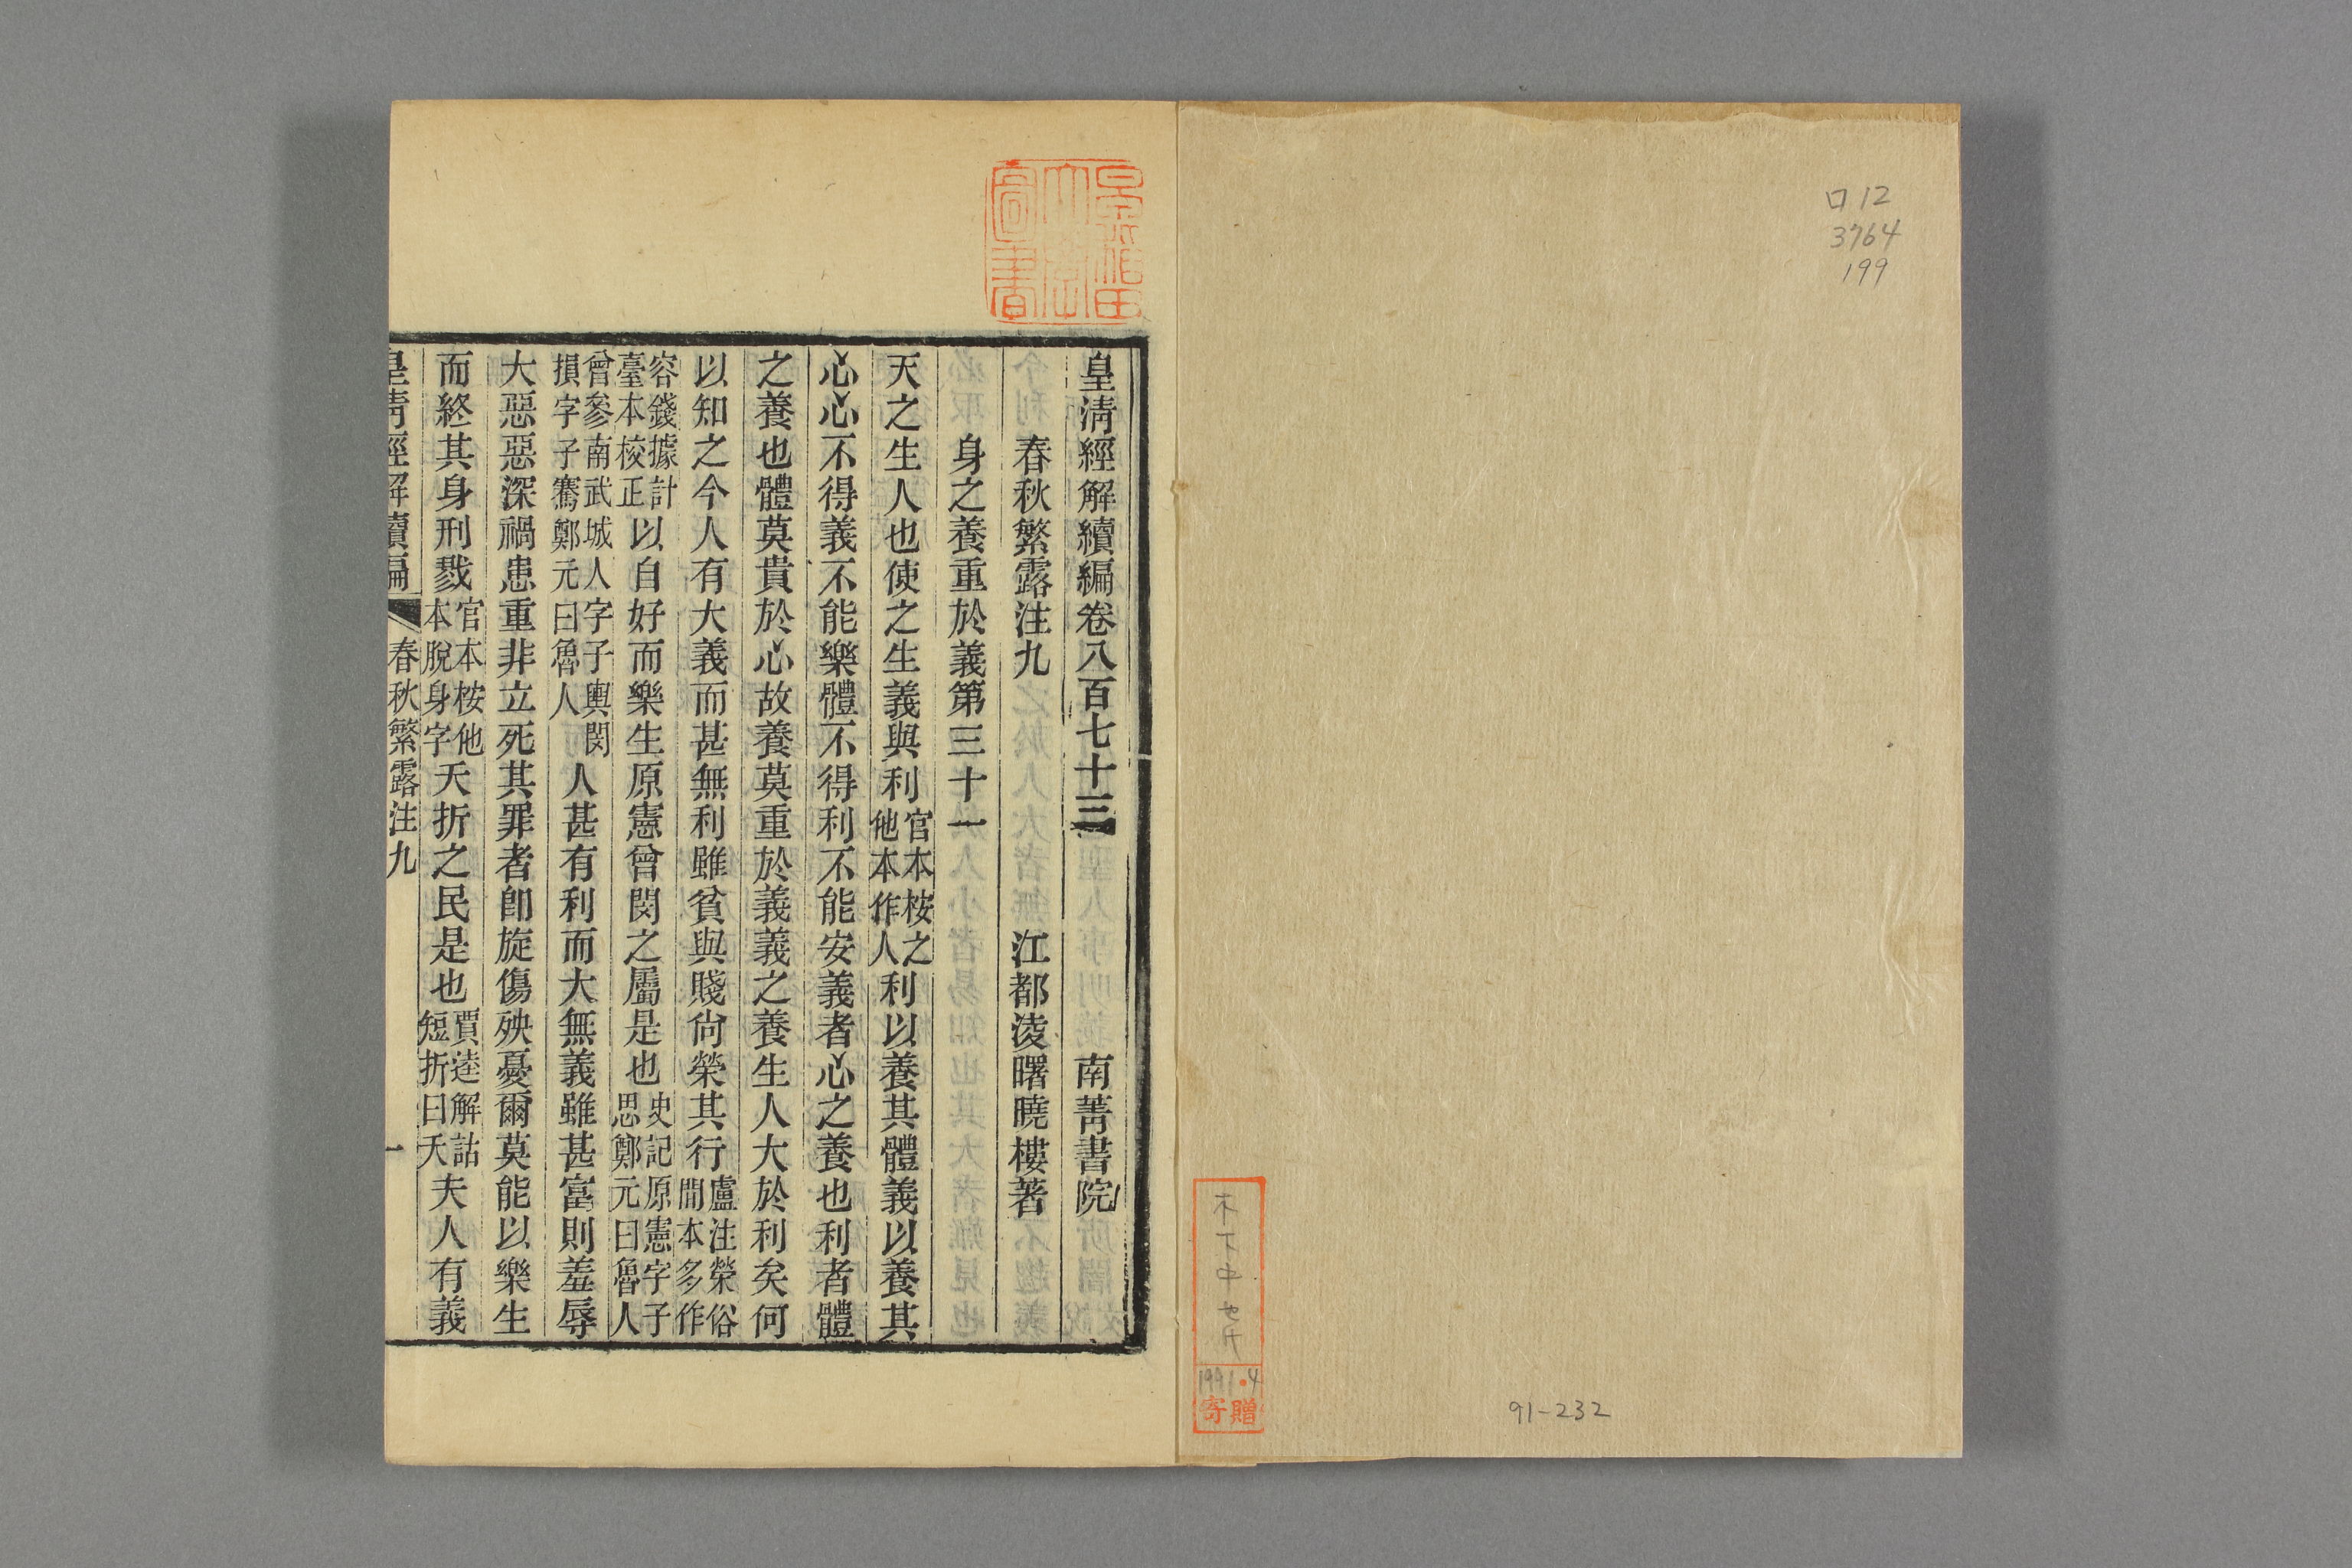 口12
3764
199
木下中也斤
1991.4
寄贈
91-232
早稲田大學圖書
皇清經解續編卷八百七十三 南菁書院
春秋繁露注九 江都淩曙曉樓著
身之養重於義第三十一
天之生人也使之生義與利官本桉之他本作人利以養其體義以養其
心心不得義不能樂體不得利不能安義者心之養也利者體
之養也體莫貴於心故養莫重於義義之養生人大於利矣何
以知之今人有大義而甚無利雖貧與賤尙榮其行盧注榮俗閒本多作
容錢據計臺本校正以自好而樂生原憲曾閔之屬是也史記原憲字子思鄭元曰魯人
曾參南武城人字子輿閔損字子騫鄭元曰魯人人甚有利而大無義雖甚富則羞辱
大惡惡深禍患重非立死其罪者卽旋傷殃憂爾莫能以樂生
而終其身刑戮官本桉他本脫身字夭折之民是也賈逵解詁短折曰夭夫人有義
皇清經解續編 春秋繁露注九 一